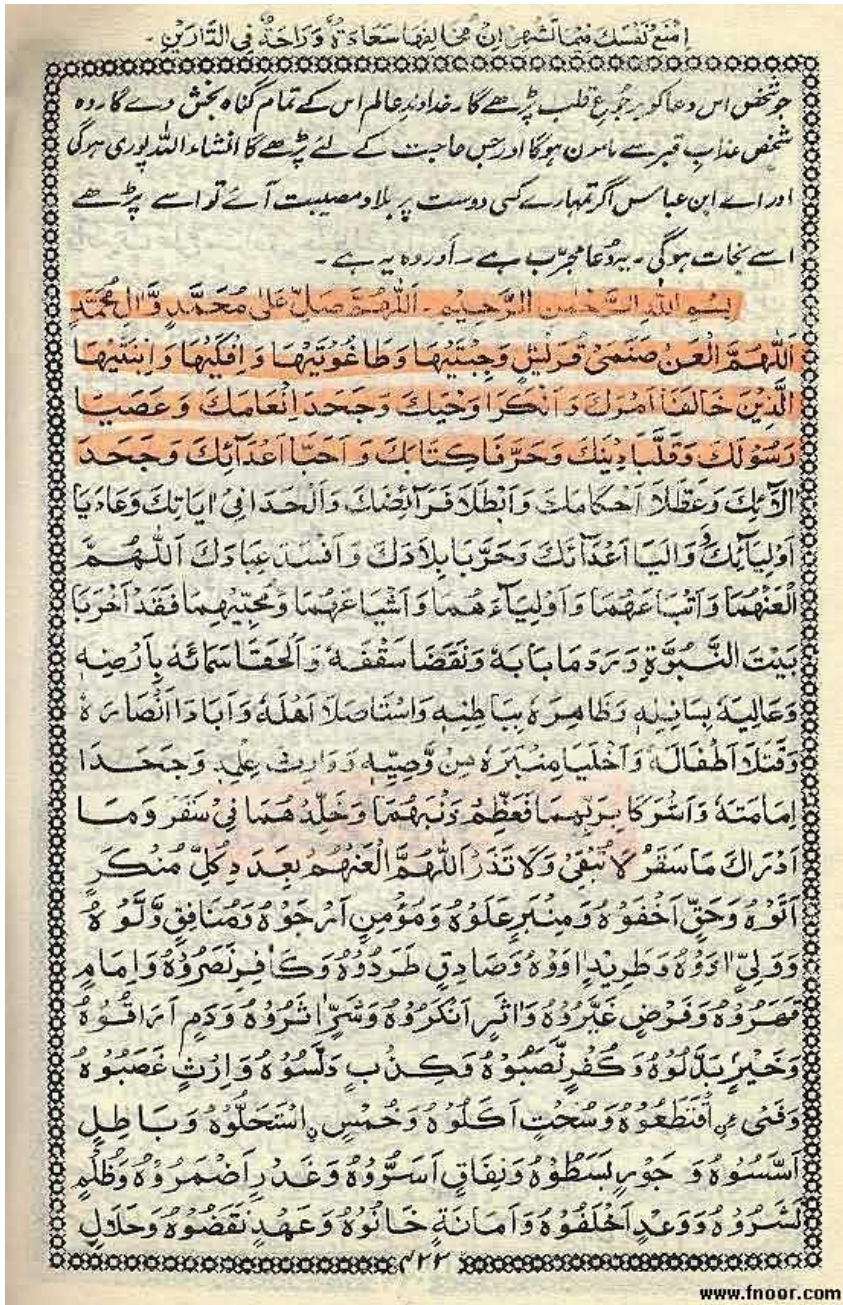 اِمْنَعْ نَفْسَكَ فِيمَا تَشْتَهِيْ اِنَّ مُخَالَفَهَا سَعَادَةٌ وَّرَاحَةٌ فِي الدَّارَيْنِ۔
جو شخص اس دعا کو برجوع قلب پڑھے گا۔ خداوند عالم اس کے تمام گناہ بخش دے گا۔ وہ
شخص عذاب قبر سے مامون ہوگا اور جس حاجت کے لئے پڑھے گا انشاء اللہ پوری ہوگی
اور اے ابن عباس اگر تمہارے کسی دوست پر بلا و مصیبت آئے تو اسے پڑھے
اسے نجات ہوگی۔ یہ دعا مجرّب ہے ۔ اور وہ یہ ہے ۔
بِسْمِ اللهِ الرَّحْمٰنِ الرَّحِيْمِ۔ اَللّٰهُمَّ صَلِّ عَلٰى مُحَمَّدٍ وَّاٰلِ مُحَمَّدٍ
اَللّٰهُمَّ الْعَنْ صَنَمَىْ قُرَيْشٍ وَجِبْتَيْهَا وَطَاغُوْتَيْهَا وَاِفْكَيْهَا وَابْنَتَيْهَا
الَّذَيْنَ خَالَفَا اَمْرَكَ وَاَنْكَرَا وَحْيَكَ وَجَحَدَ اِنْعَامَكَ وَعَصَيَا
رَسُوْلَكَ وَقَلَّبَا دِيْنَكَ وَحَرَّفَا كِتَابَكَ وَاَحَبَّا اَعْدَائَكَ وَجَحَدَ
اٰلَائَكَ وَعَطَّلَا اَحْكَامَكَ وَاَبْطَلَا فَرَائِضَكَ وَاَلْحَدَا فِىْ اٰيَاتِكَ وَعَادَيَا
اَوْلِيَائَكَ وَوَالَيَا اَعْدَائَكَ وَخَرَّبَا بِلَادَكَ وَاَفْسَدَ عِبَادَكَ اَللّٰهُمَّ
الْعَنْهُمَا وَاَتْبَاعَهُمَا وَاَوْلِيَآءَهُمَا وَاَشْيَاعَهُمَا وَمُحِبِّيْهِمَا فَقَدْ اَخْرَبَا
بَيْتَ النُّبُوَّةِ وَرَدَمَا بَابَهٗ وَنَقَضَا سَقْفَهٗ وَاَلْحَقَا سَمَائَهٗ بِاَرْضِهٖ
وَعَالِيَهٗ بِسَافِلِهٖ وَظَاهِرَهٗ بِبَاطِنِهٖ وَاسْتَاصَلَا اَهْلَهٗ وَاَبَادَا اَنْصَارَهٗ
وَقَتَلَا اَطْفَالَهٗ وَاَخْلَيَا مِنْبَرَهٗ مِنْ وَّصِيِّهٖ وَوَارِثِ عِلْمِهٖ وَجَحَدَا
اِمَامَتَهٗ وَاَشْرَكَا بِرَبِّهِمَا فَعَظِّمْ ذَنْبَهُمَا وَخَلِّدْهُمَا فِىْ سَقَرَ وَمَا
اَدْرَاكَ مَا سَقَرُ لَا تُبْقِىْ وَلَا تَذَرُ اَللّٰهُمَّ الْعَنْهُمْ بِعَدَدِ كُلِّ مُنْكَرٍ
اَتَوْهُ وَحَقٍّ اَخْفَوْهُ وَمِنْبَرٍ عَلَوْهُ وَمُؤْمِنٍ اَرْجَوْهُ وَمُنَافِقٍ وَّلَّوْهُ
وَوَلِىٍّ اٰذَوْهُ وَطَرِيْدٍ اٰوَوْهُ وَصَادِقٍ طَرَدُوْهُ وَكَافِرٍ نَصَرُوْهُ وَاِمَامٍ
قَهَرُوْهُ وَفَرْضٍ غَيَّرُوْهُ وَاَثَرٍ اَنْكَرُوْهُ وَشَرٍّ اٰثَرُوْهُ وَدَمٍ اَرَاقُوْهُ
وَخَيْرٍ بَدَّلُوْهُ وَكُفْرٍ نَصَبُوْهُ وَكِذْبٍ دَلَّسُوْهُ وَاِرْثٍ غَصَبُوْهُ
وَفَىْءٍ اقْتَطَعُوْهُ وَسُحْتٍ اَكَلُوْهُ وَخُمْسٍ اسْتَحَلُّوْهُ وَبَاطِلٍ
اَسَّسُوْهُ وَجَوْرٍ بَسَطُوْهُ وَنِفَاقٍ اَسَرُّوْهُ وَغَدْرٍ اَضْمَرُوْهُ وَظُلْمٍ
نَشَرُوْهُ وَوَعْدٍ اَخْلَفُوْهُ وَاَمَانَةٍ خَانُوْهُ وَعَهْدٍ نَقَضُوْهُ وَحَلَالٍ
۴۲۲
www.fnoor.com